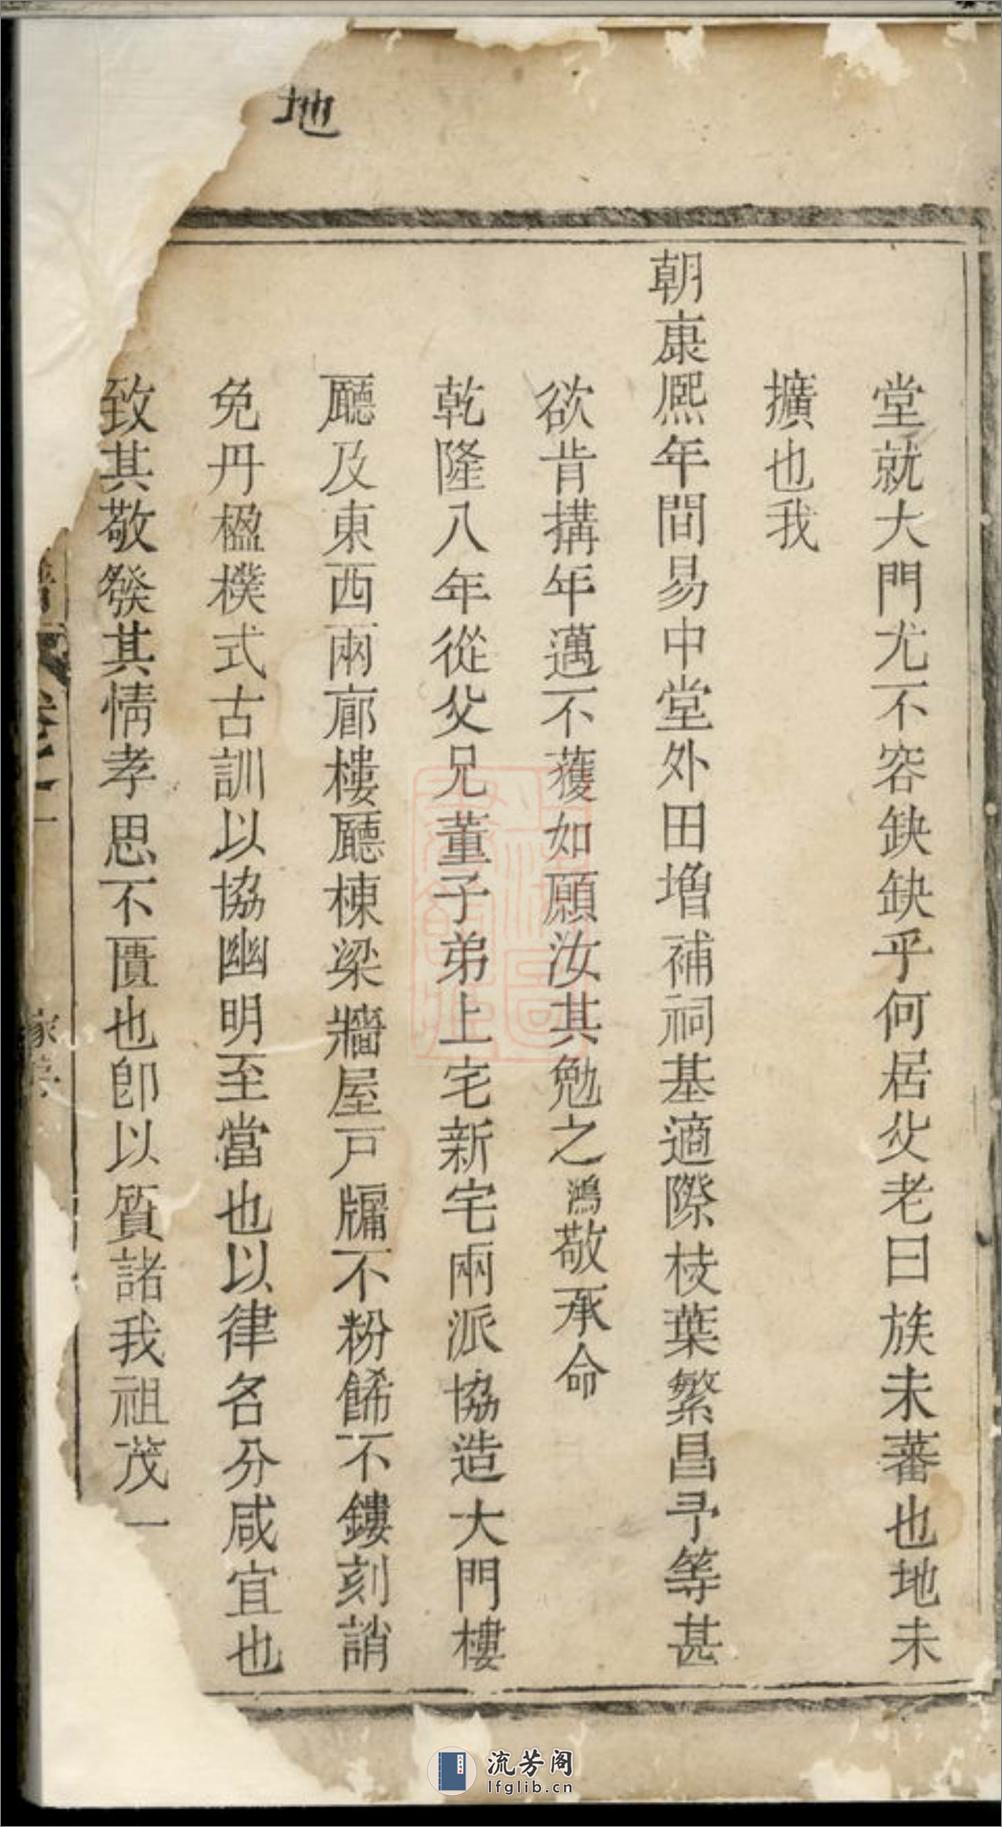 地
堂就大門尤不容缺缺乎何居父老曰族未蕃也地未
擴也我
朝康熈年間易中堂外田增補祠基適際枝葉繁昌予等甚
欲肯搆年邁不獲如願汝其勉之鴻敬承命
乾隆八年從父兄董子弟上宅新宅兩派協造大門樓
廳及東西兩廊樓廳棟梁牆屋戸牖不粉餙不鏤刻誚
免丹楹樸式古訓以協幽明至當也以律名分咸宜也
致其敬發其情孝思不匱也卽以質諸我祖茂一
卷之一
流芳阁
lfglib.cn